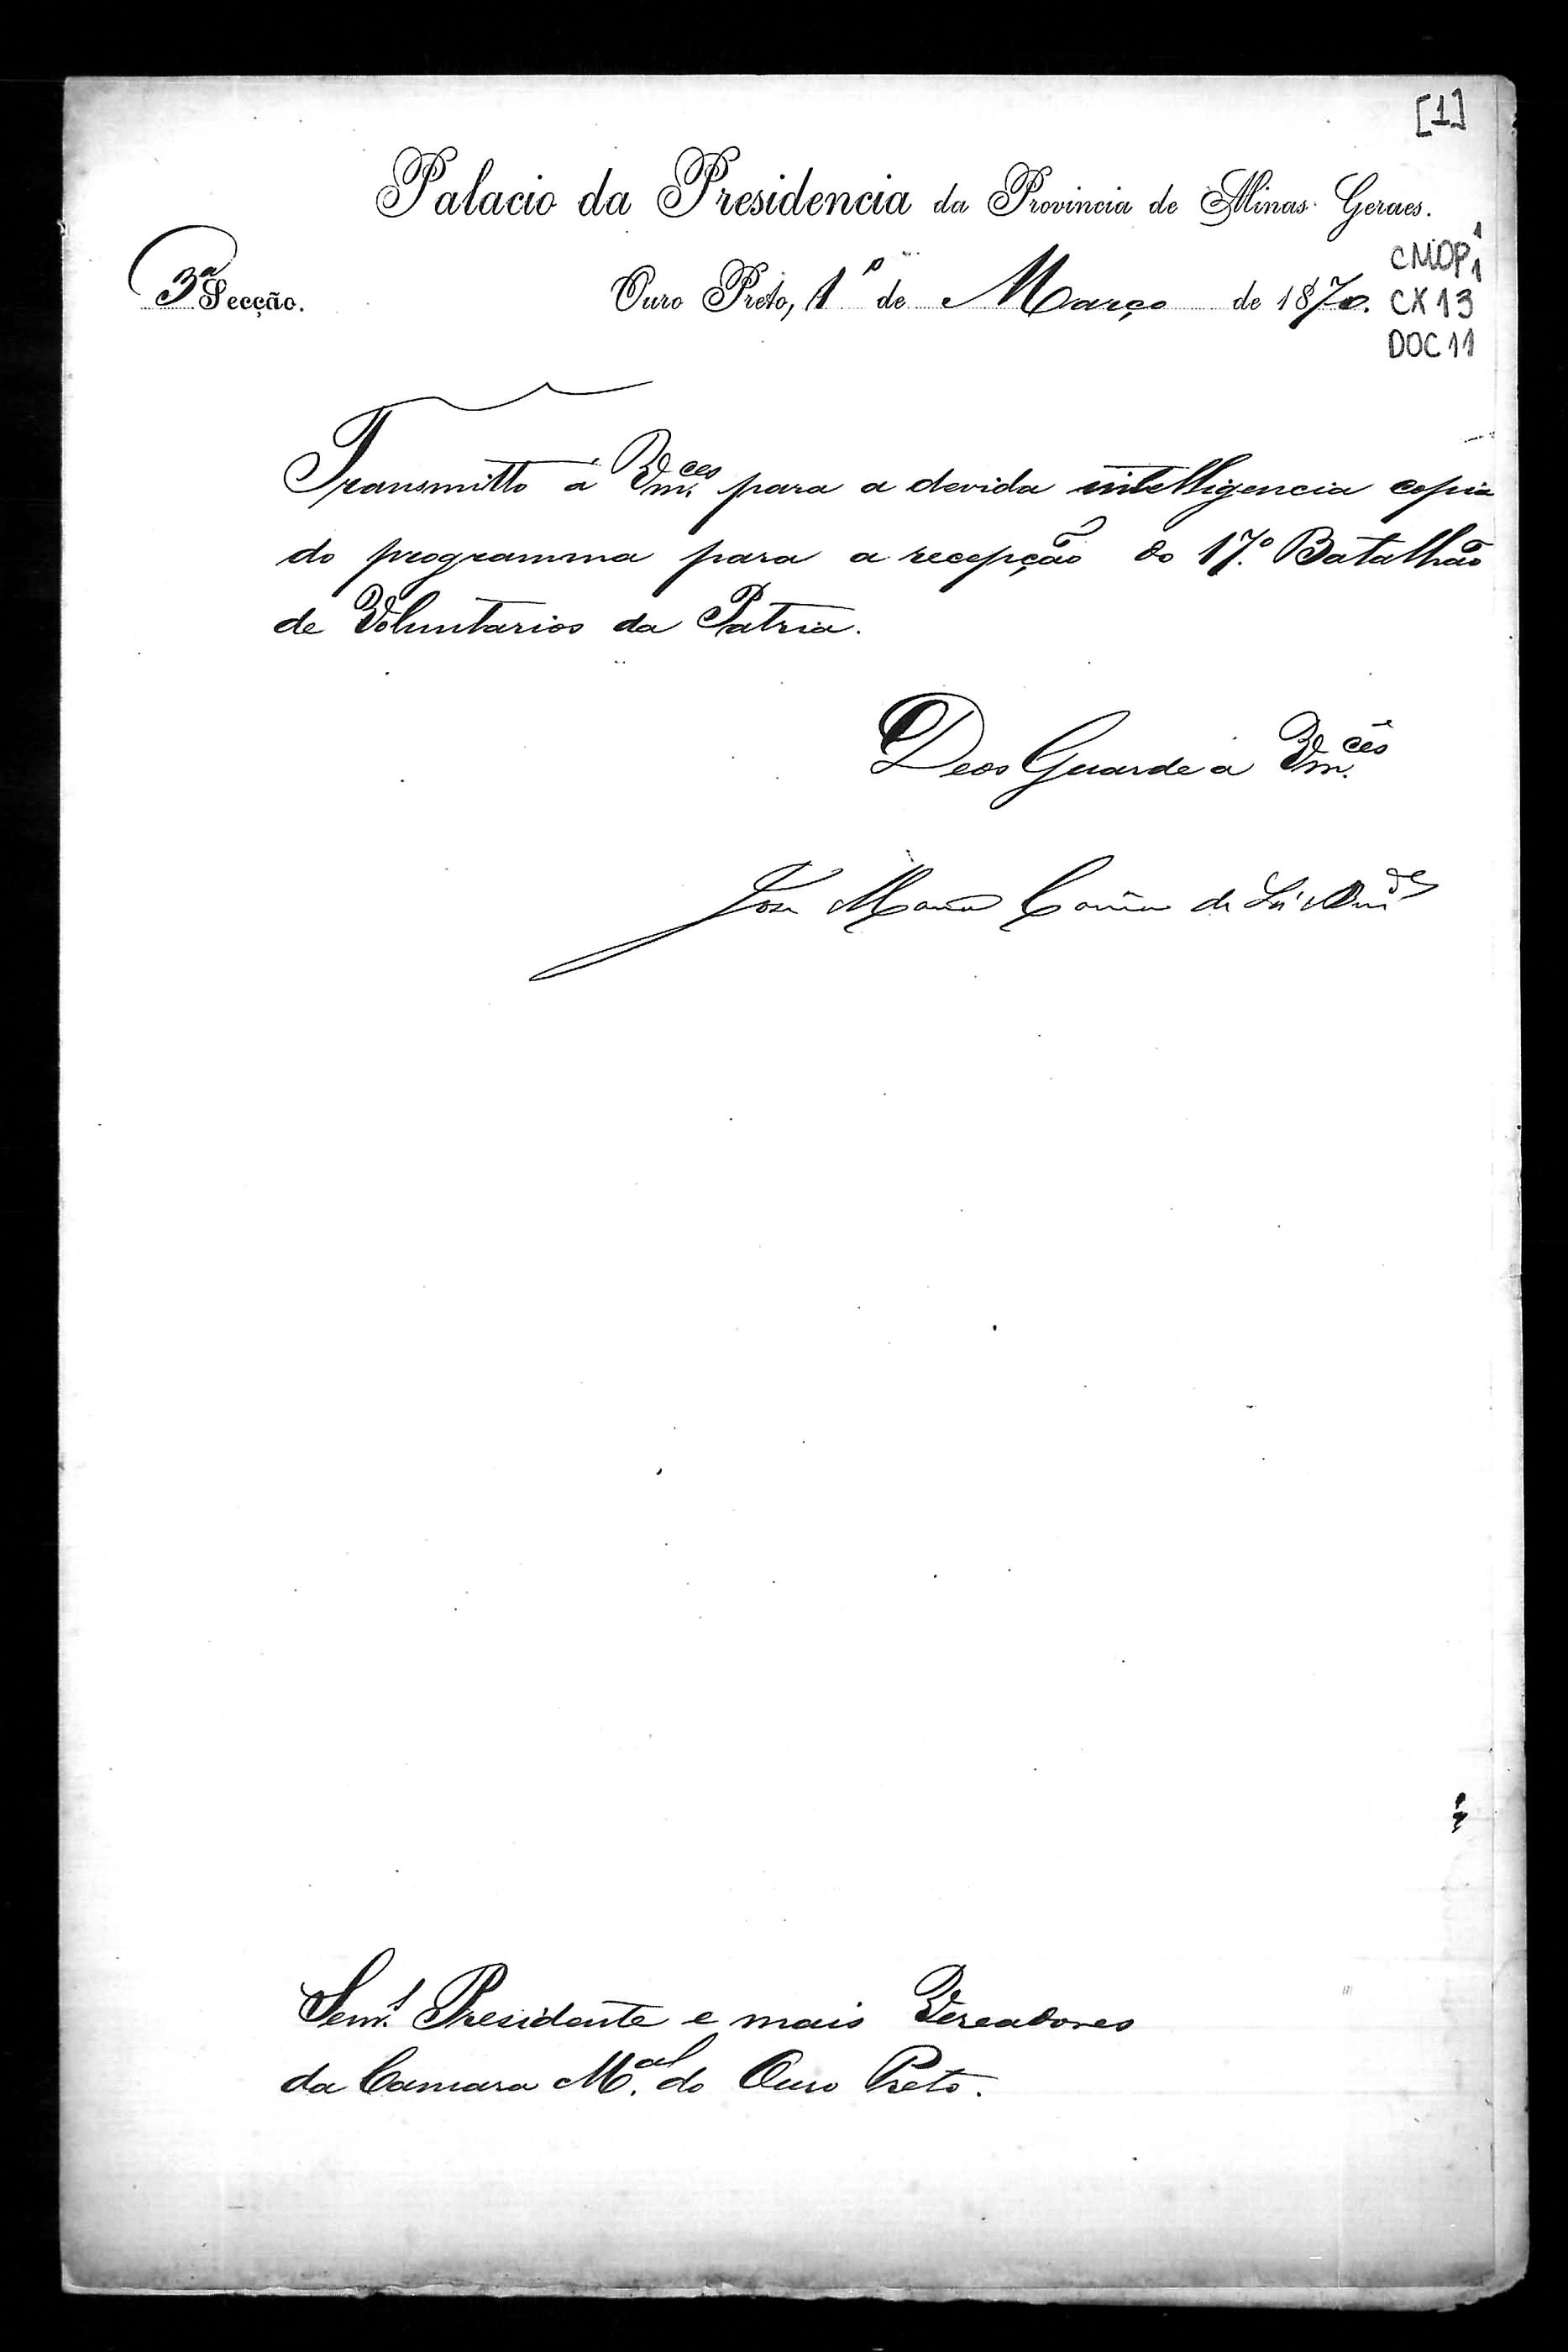 [1]
Palacio da Presidencia da Provincia de Minas Geraes.
3ª Secção.
Ouro Preto, 1º de Março de 1870.
CMOP 1
1
CX 13
DOC 11
Transmitto a Vm.ces para a devida intelligencia copia
do programma para a recepção do 17.º Batalhão
de Voluntarios da Patria.
Deos Guarde a Vm.ces
José Maria Corrêa de Sá e
Presidente e mais Vereadores
da Camara M.al do Ouro Preto.